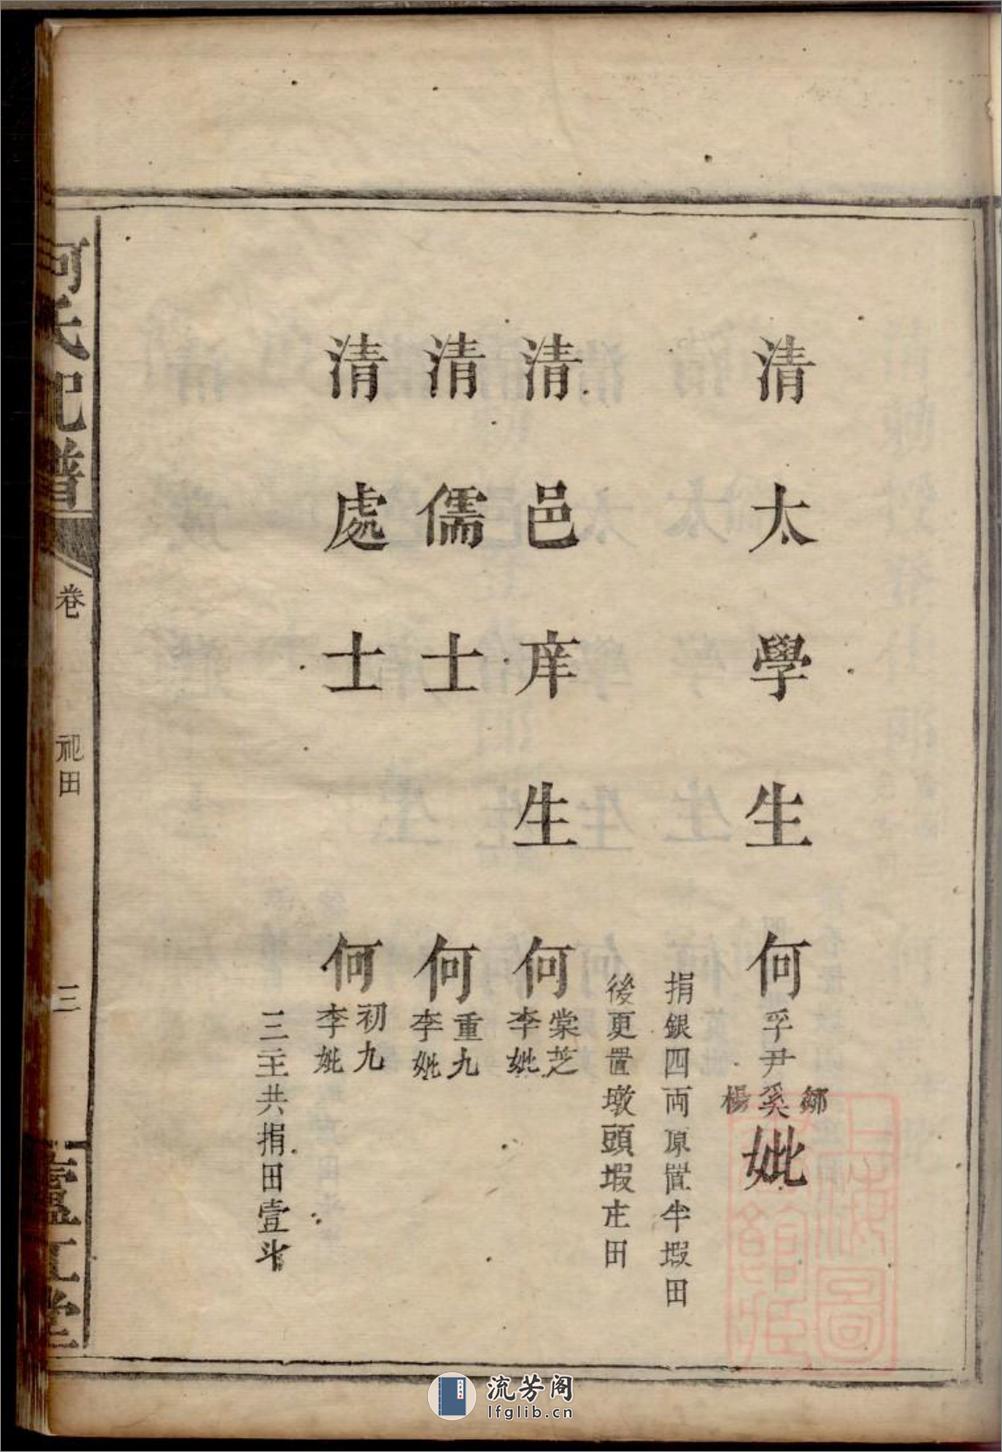 清太學生何孚尹鄒奚楊妣
捐銀四両原置半塅田
後更置墩頭塅庄田
清邑庠生何棠芝李妣
清儒士何重九李妣
清處士何初九李妣
三主共捐田壹斗
何氏祀譜
卷
祀田
三
廬江堂
流芳阁
lfglib.cn